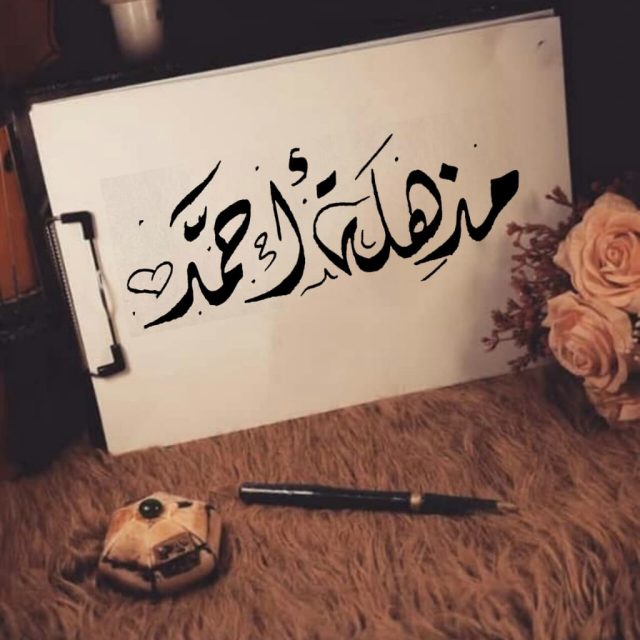 مذهلة أحمد